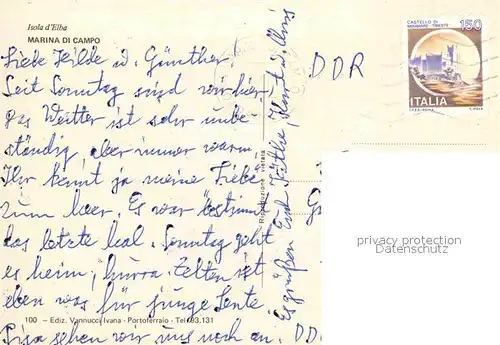 Isola d'Elba
MARINA DI CAMPO
Liebe Hilde u. Günther!
Seit Sonntag sind wir hier,
das Wetter ist sehr unbe-
ständig, aber immer warm.
Ihr kennt ja meine Liebe
zum Meer. Es war bestimmt
das letzte Mal. Sonntag geht
es heim, hurra. Zelten ist
eben was für junge Leute.
Pisa sehen wir uns noch an.
Es grüßen Euch Käthe, Kurt u. Uwi
100 - Ediz. Vannucci Ivana - Portoferraio - Tel. 93.131
Riproduzione vietata
DDR
G
DD
CASTELLO DI
MIRAMARE - TRIESTE
150
ITALIA
privacy protection
Datenschutz